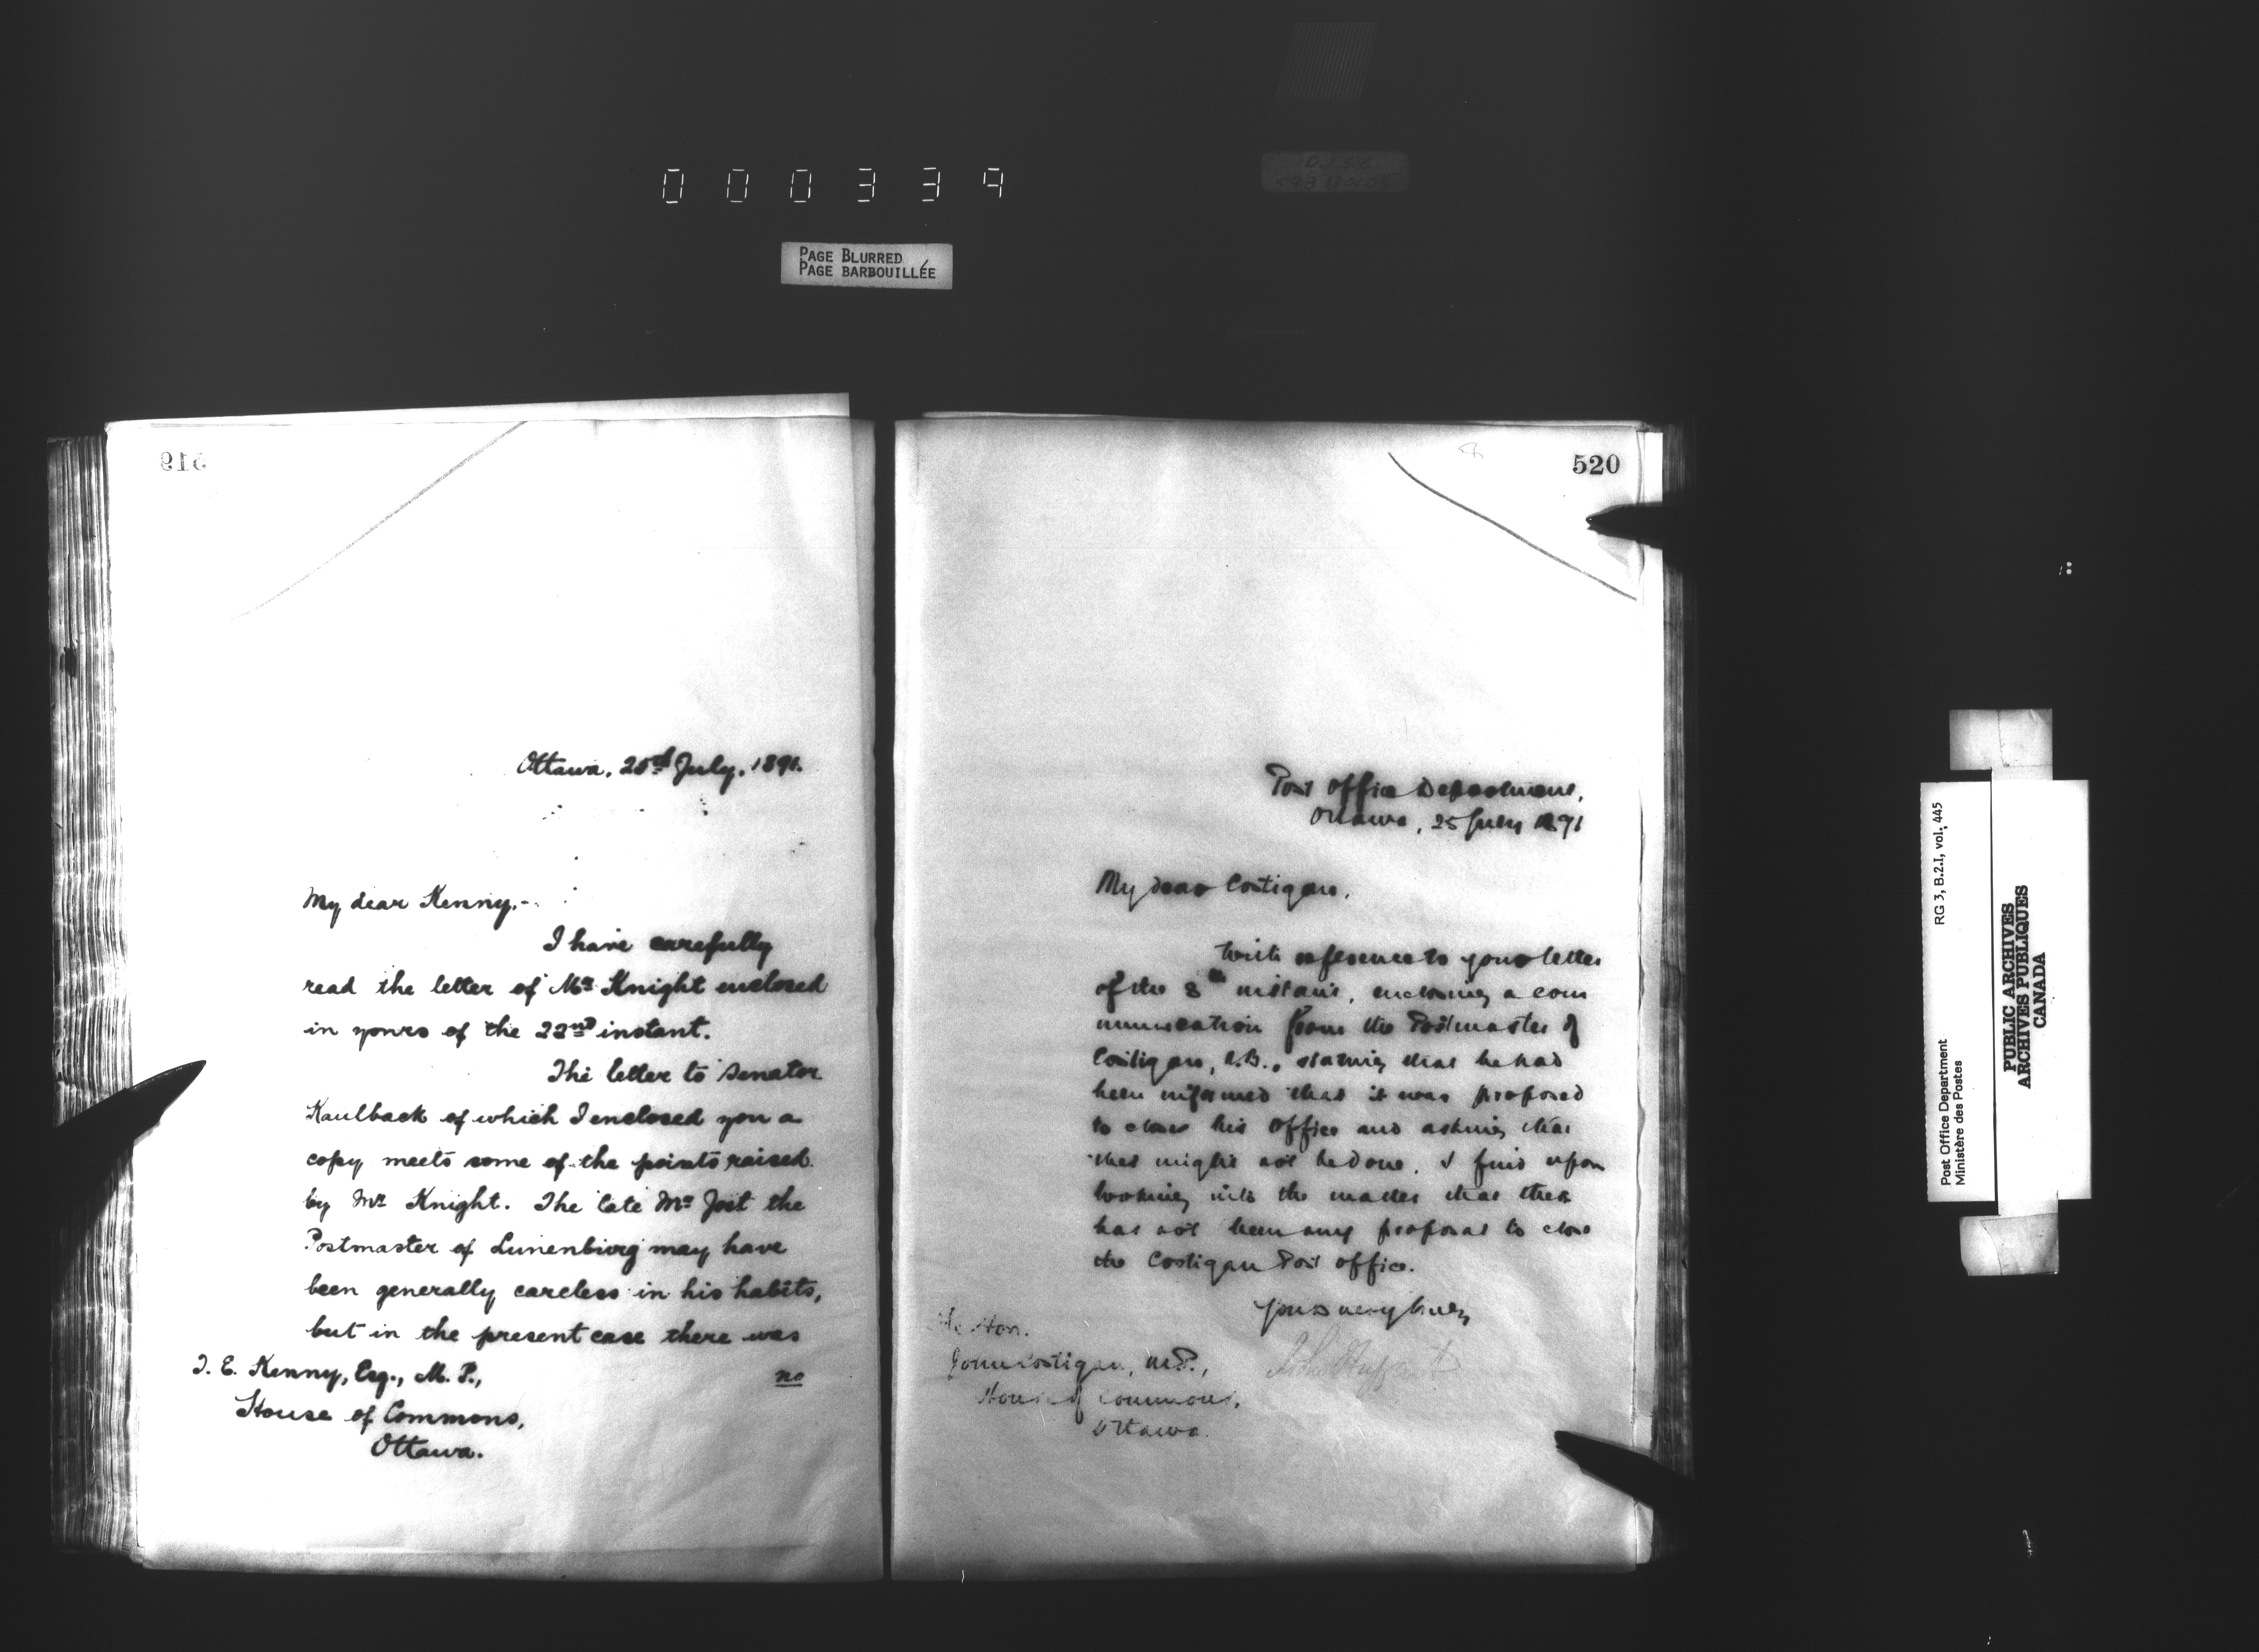 000339
PAGE BLURRED
PAGE BARBOUILLÉE
519
Ottawa, 25th July, 1891.
My dear Kenny,-
I have carefully
read the letter of Mr Knight enclosed
in yours of the 22nd instant.
The letter to Senator
Kaulback of which I enclosed you a
copy meets some of the points raised
by Mr Knight. The late Mr Jost the
Postmaster of Lunenburg may have
been generally careless in his habits,
but in the present case there was
no
T. E. Kenny, Esq., M. P.,
House of Commons,
Ottawa.
520
Post Office Department,
Ottawa, 25 July 1891
My dear Costigan,
With reference to your letter
of the 8th instant, enclosing a com
munication from the Postmaster of
Costigan, N.B., stating that he had
been informed that it was proposed
to close his office and asking that
this might not be done. I find upon
looking into the matter that there
has not been any proposal to close
the Costigan Post office.
Yours very truly,
John Haggart
The Hon.
John Costigan, M.P.,
House of Commons,
Ottawa.
Post Office Department
Ministère des Postes
RG 3, B.2.I, vol. 445
PUBLIC ARCHIVES
ARCHIVES PUBLIQUES
CANADA